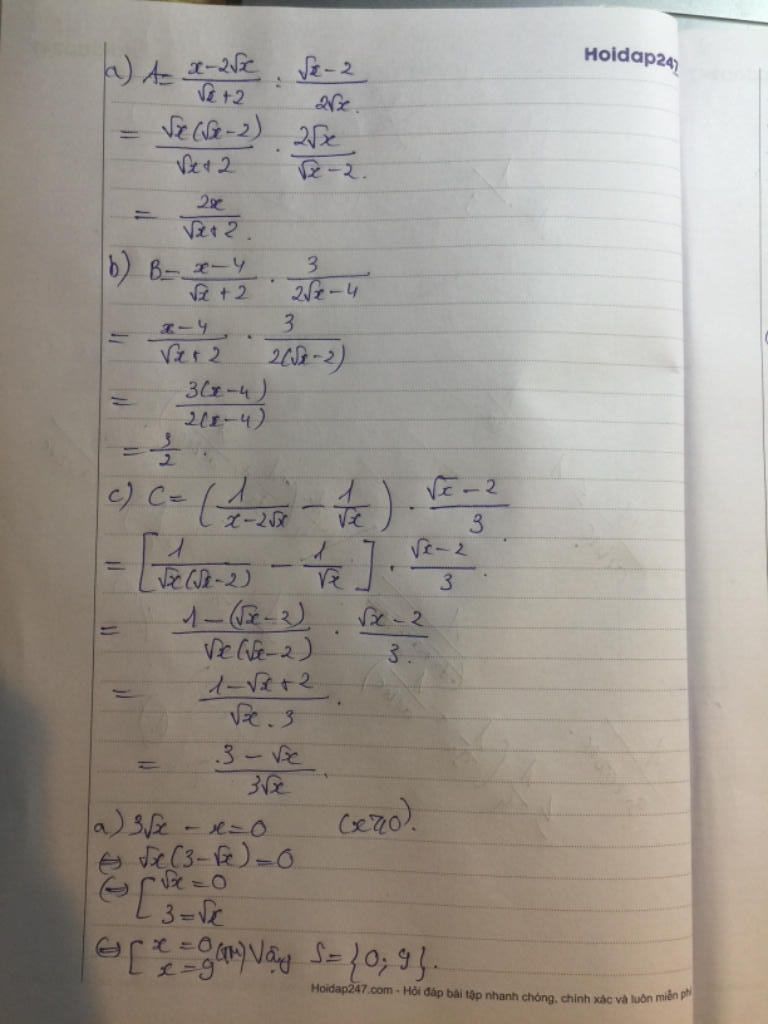 Hoidap247
a) A = \frac{x-2\sqrt{x}}{\sqrt{x}+2} : \frac{\sqrt{x}-2}{2\sqrt{x}}.
= \frac{\sqrt{x}(\sqrt{x}-2)}{\sqrt{x}+2} \cdot \frac{2\sqrt{x}}{\sqrt{x}-2}.
= \frac{2x}{\sqrt{x}+2}.
b) B = \frac{x-4}{\sqrt{x}+2} \cdot \frac{3}{2\sqrt{x}-4}
= \frac{x-4}{\sqrt{x}+2} \cdot \frac{3}{2(\sqrt{x}-2)}
= \frac{3(x-4)}{2(x-4)}
= \frac{3}{2}.
c) C = \left(\frac{1}{x-2\sqrt{x}} - \frac{1}{\sqrt{x}}\right) \cdot \frac{\sqrt{x}-2}{3}.
= \left[\frac{1}{\sqrt{x}(\sqrt{x}-2)} - \frac{1}{\sqrt{x}}\right] \cdot \frac{\sqrt{x}-2}{3}.
= \frac{1-(\sqrt{x}-2)}{\sqrt{x}(\sqrt{x}-2)} \cdot \frac{\sqrt{x}-2}{3}.
= \frac{1-\sqrt{x}+2}{\sqrt{x}.3}.
= \frac{3-\sqrt{x}}{3\sqrt{x}}.
a) 3\sqrt{x} - x = 0 (x ≥ 0).
⇔ \sqrt{x}(3-\sqrt{x}) = 0
⇔ [ \sqrt{x} = 0
3 = \sqrt{x}
⇔ [ x = 0 (TM) Vậy S = {0; 9}.
x = 9
Hoidap247.com - Hỏi đáp bài tập nhanh chóng, chính xác và luôn miễn phí